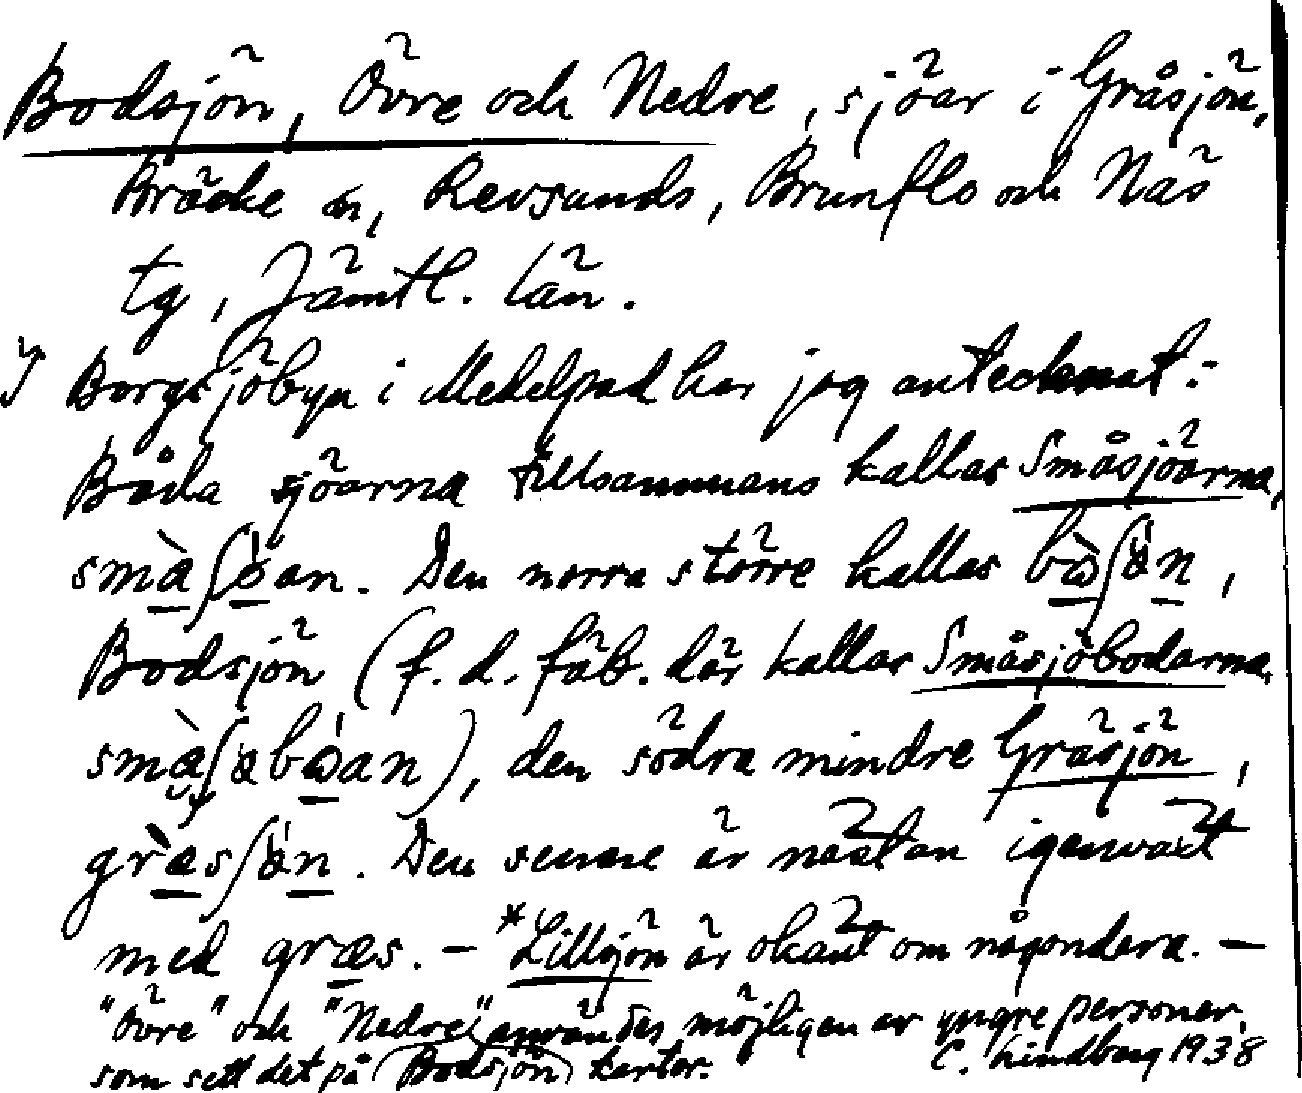 Bodsjön, Övre och Nedre, sjöar i Gräsjön,
Bräcke sn, Revsunds, Brunflo och Näs
tg, Jämtl. län.
I Borgsjöbyn i Medelpad har jag antecknat:
Båda sjöarna tillsammans kallas Småsjöarna,
smàʃøan. Den norra större kallas bòʃön,
Bodsjön (f. d. fäb. där kallas Småsjöbodarna,
den södra mindre Gräsjön,
Den senare är nästan igenväxt
med græs. – *Lillsjön är okänt om någondera. –
"Övre" och "Nedre" användes möjligen av yngre personer,
som sett det på (Bodsjön) kartor. C. Lindberg 1938